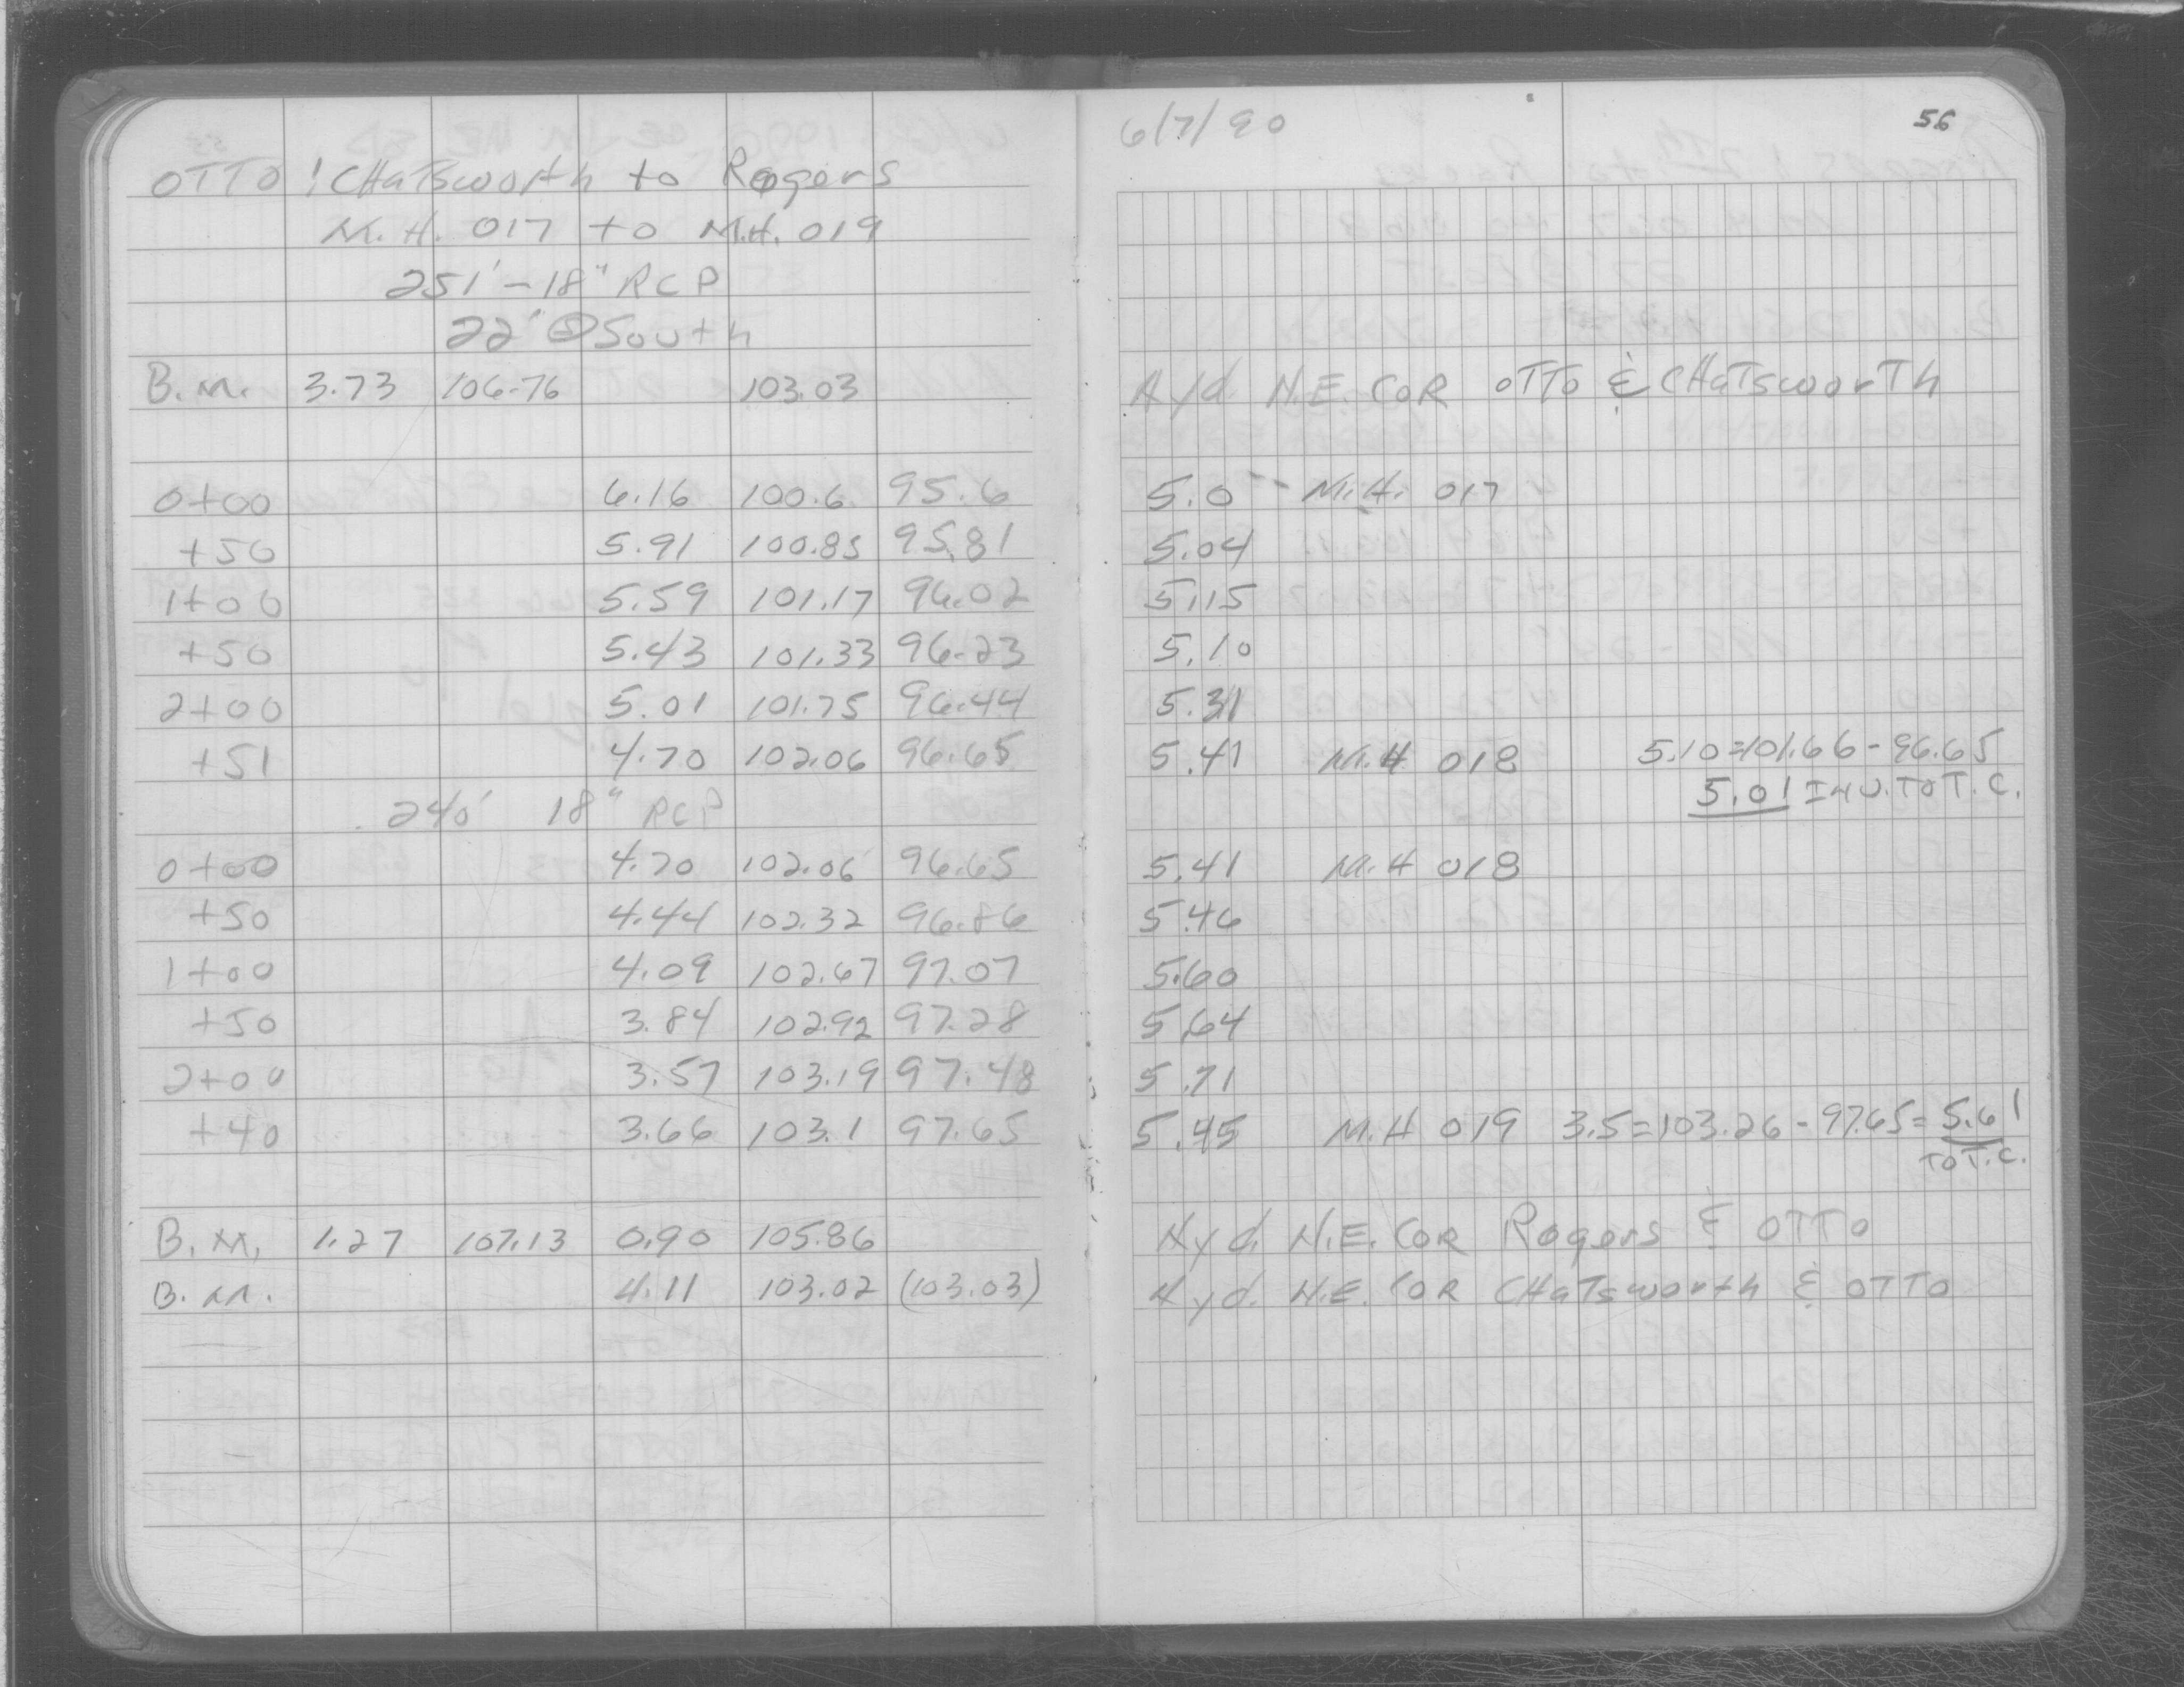 6/7/90 56
OTTO ! CHaTsworth to Rogers
M.H. 017 to M.H. 019
251' - 18" RCP
22' @ South
B.M. 3.73 106.76 103.03 Hyd. N.E. COR OTTO & CHaTsworTh
0+00 6.16 100.6 95.6 5.0 -- M.H. 017
+50 5.91 100.85 95.81 5.04
1+00 5.59 101.17 96.02 5.15
+50 5.43 101.33 96.23 5.10
2+00 5.01 101.75 96.44 5.31
+51 4.70 102.06 96.65 5.41 M.H 018 5.10=101.66-96.65
5.01 INV. TO T.C.
240' 18" RCP
0+00 4.70 102.06 96.65 5.41 M.H 018
+50 4.44 102.32 96.86 5.46
1+00 4.09 102.67 97.07 5.60
+50 3.84 102.92 97.28 5.64
2+00 3.57 103.19 97.48 5.71
+40 3.66 103.1 97.65 5.45 M.H 019 3.5=103.26-97.65=5.61
TO T.C.
B.M. 1.27 107.13 0.90 105.86 Hyd. N.E. COR Rogers & OTTO
B.M. 4.11 103.02 (103.03) Hyd. N.E. COR CHaTsworth & OTTO